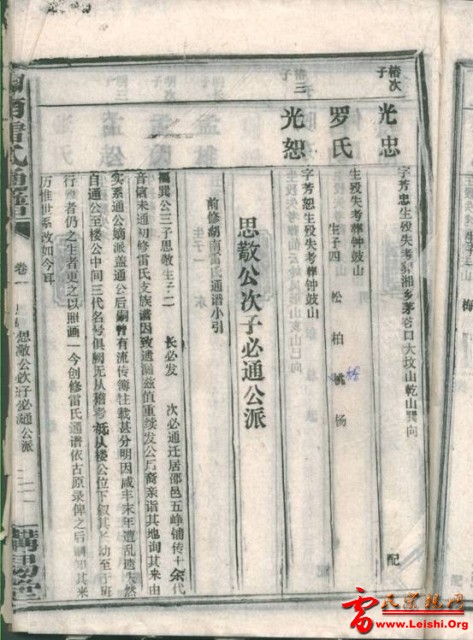 椿次子
光忠
字芳忠生殁失考葬湘乡茅巷口大坟山乾山巽向
配
罗氏
生殁失考葬钟鼓山
生子四 松 柏 桃 杨
椿三子
光恕
字芳恕生殁失考葬钟鼓山
配
思敬公次子必通公派
前修湖南雷氏通谱小引
巽公三子思敬生子二 长必发 次必通迁居邵邑五峥铺传十余代
音信未通初修雷氏支族谱因致遗漏兹值重续发公后裔亲诣其地询其来由
实系通公嫡派盖通公后嗣曾有流传簿牡载甚分明因咸丰末年遭乱遗失然
自通公至楼公中间三代名号俱阙无从稽考抚从楼公位下叙其长幼至于班
行者仍之生者更之以照画一今创修雷氏通谱依古原录俾之后嗣知其来
历惟世系改如今耳
卷一
思敬公次子必通公派
雷氏宗族网
www.Leishi.Org